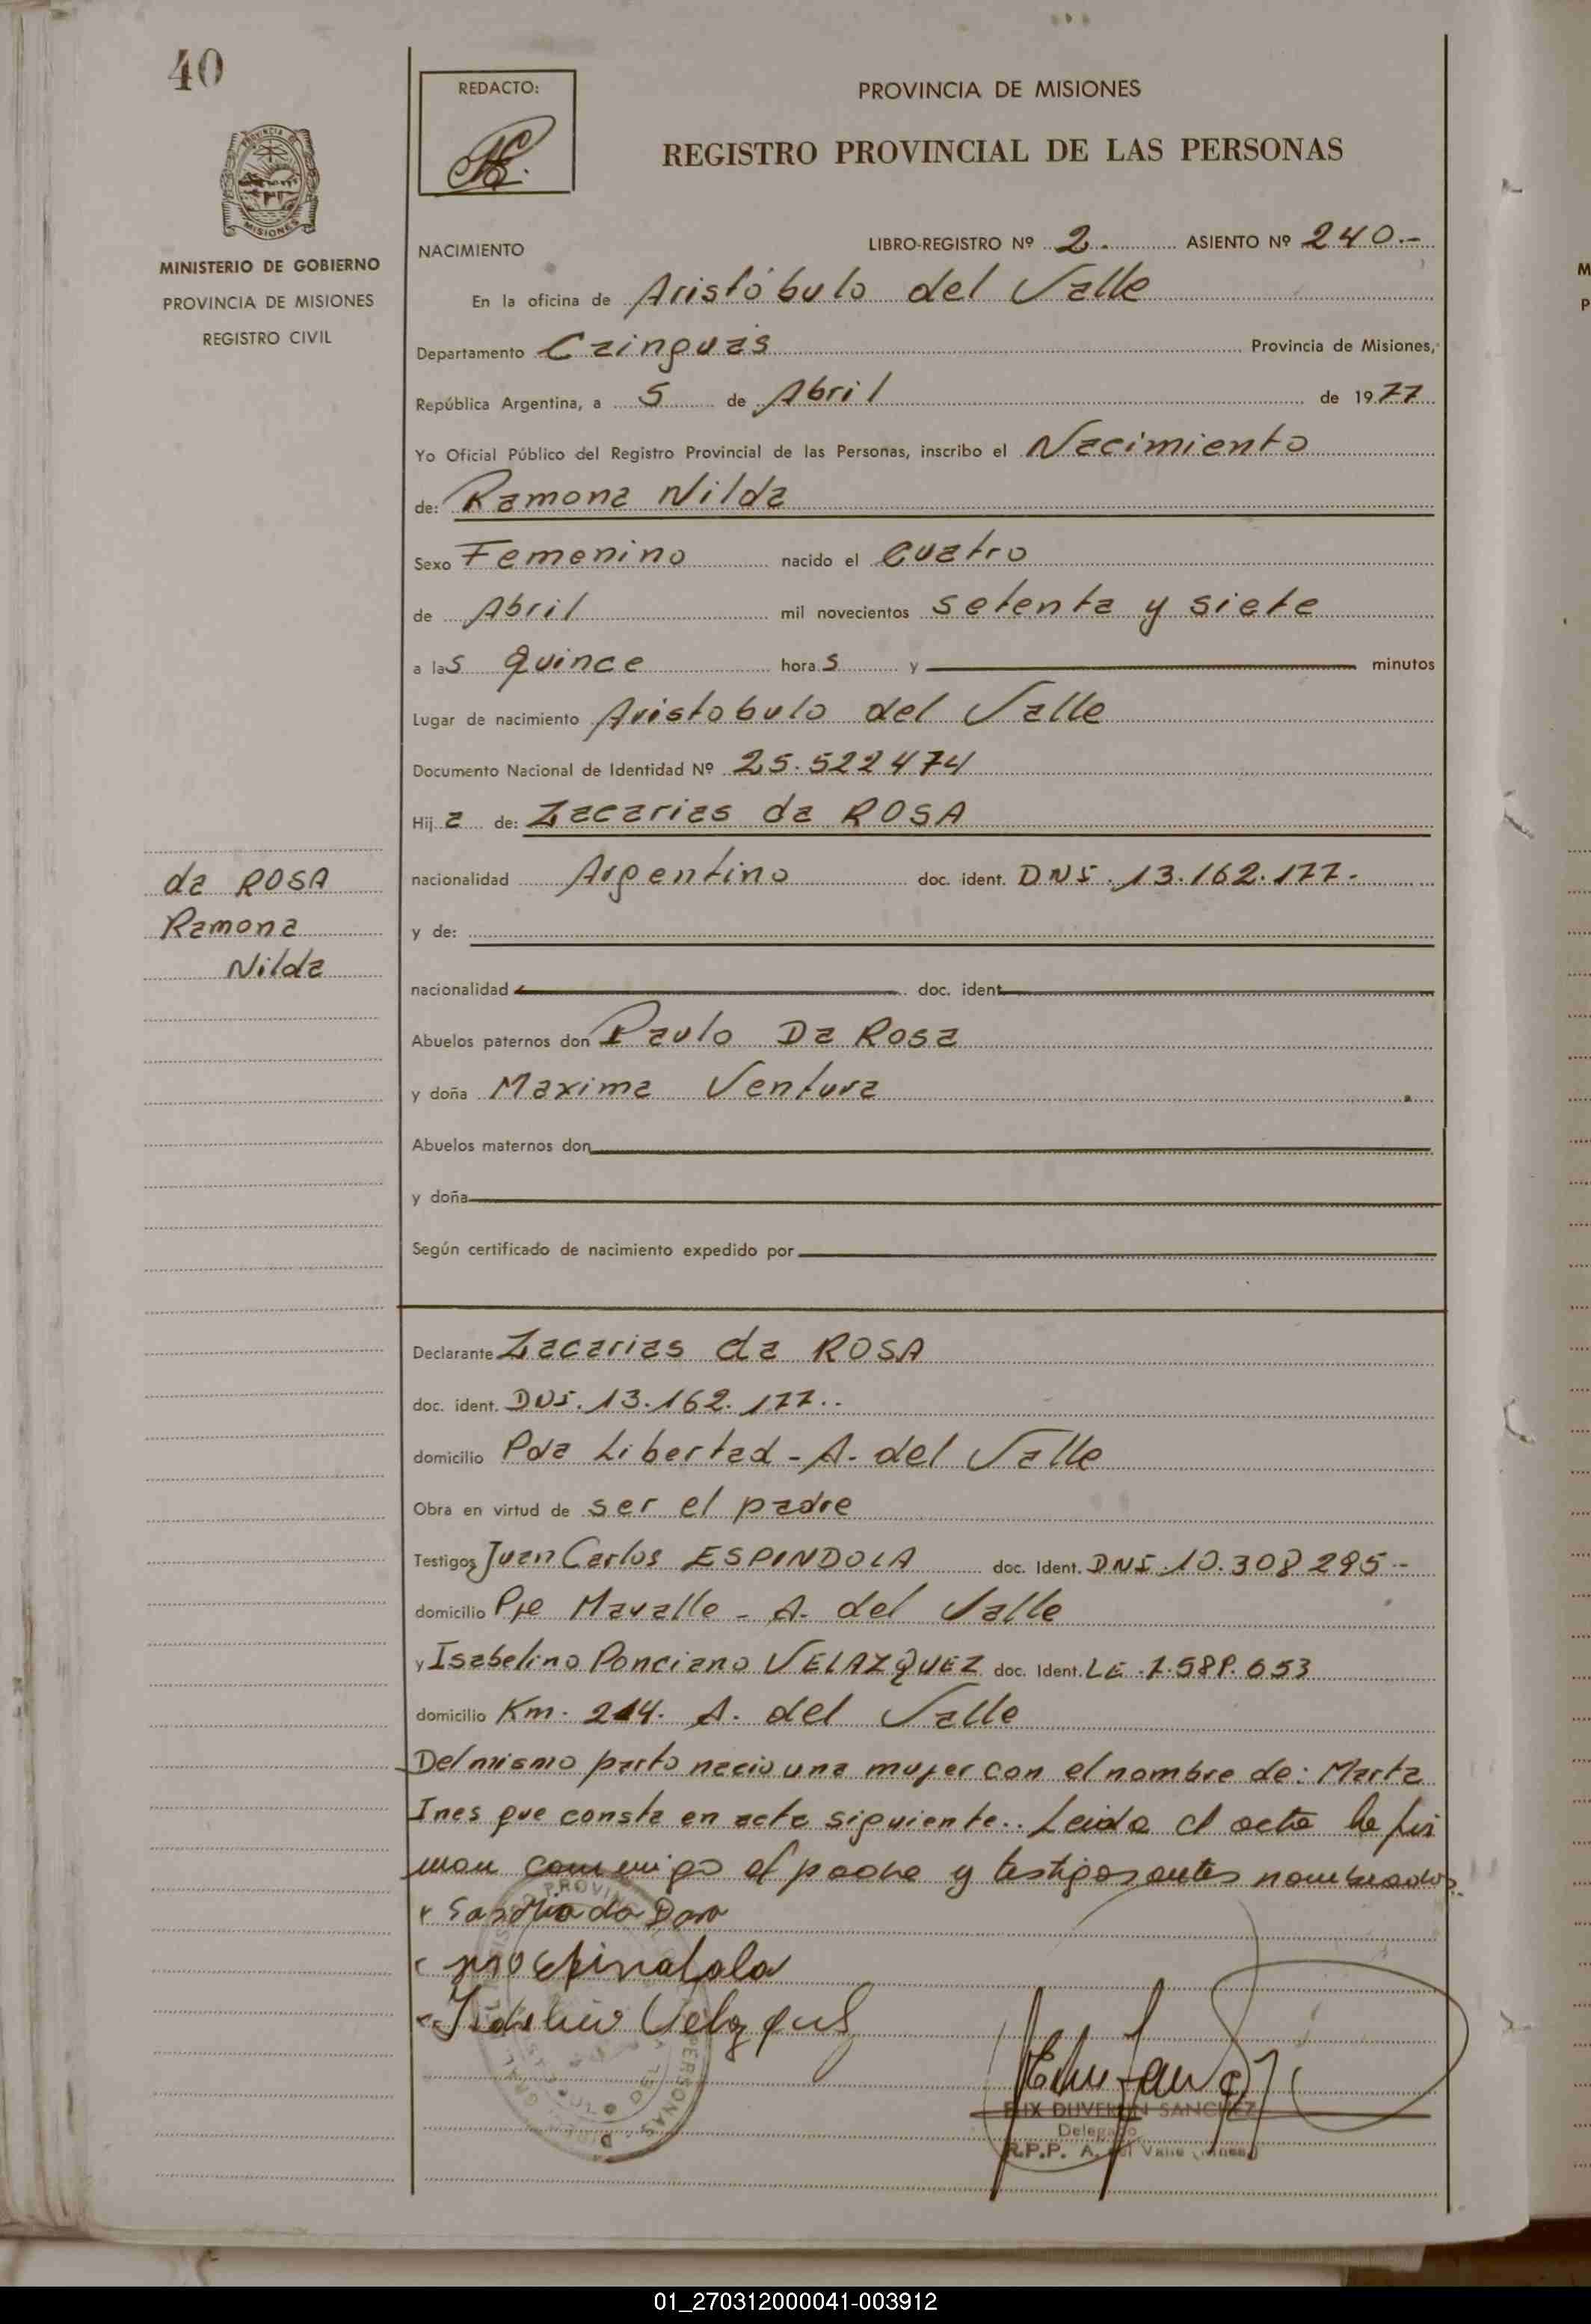 40
REDACTO:
PROVINCIA DE MISIONES
REGISTRO PROVINCIAL DE LAS PERSONAS
MISIONES
MINISTERIO DE GOBIERNO
PROVINCIA DE MISIONES
REGISTRO CIVIL
NACIMIENTO
LIBRO-REGISTRO Nº 2. ASIENTO Nº 240.-
En la oficina de Aristóbulo del Valle
Departamento Cainguás Provincia de Misiones,
República Argentina, a 5 de Abril de 1977
Yo Oficial Público del Registro Provincial de las Personas, inscribo el Nacimiento
de: Ramona Nilda
Sexo Femenino nacido el cuatro
de Abril mil novecientos setenta y siete
a las quince horas y minutos
Lugar de nacimiento Aristobulo del Valle
Documento Nacional de Identidad Nº 25.522474
Hija de: Zacarias da ROSA
nacionalidad Argentino doc. ident. DNI. 13.162.177.-
y de:
nacionalidad doc. ident.
da ROSA
Ramona
Nilda
Abuelos paternos don Paulo Da Rosa
y doña Maxima Ventura
Abuelos maternos don
y doña
Según certificado de nacimiento expedido por
Declarante Zacarias da ROSA
doc. ident. DNI. 13.162.177..
domicilio Pda Libertad - A. del Valle
Obra en virtud de ser el padre
Testigos Juan Carlos ESPINDOLA doc. Ident. DNI. 10.308295--
domicilio Pje Mavalle - A. del Valle
y Isabelino Ponciano VELAZQUEZ doc. Ident. LE.
domicilio Km. 214. A. del Valle
Del mismo parto nacio una mujer con el nombre de: Marta
Ines que consta en acta siguiente.. Leida el acta la fir
man conmigo el padre y testigos antes nombrados.
SANCHEZ
Delegado
R.P.P. A. del Valle
01_270312000041-003912